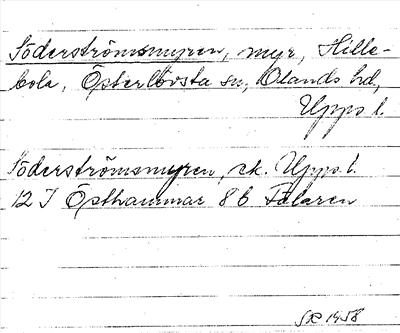 Söderströmsmyren, myr, Hille-
bola, Österlövsta sn, Olands hd,
Upps l.
Söderströmsmyren, ek. Upps l.
12 I Östhammar 8 b Falaren
SR 1458